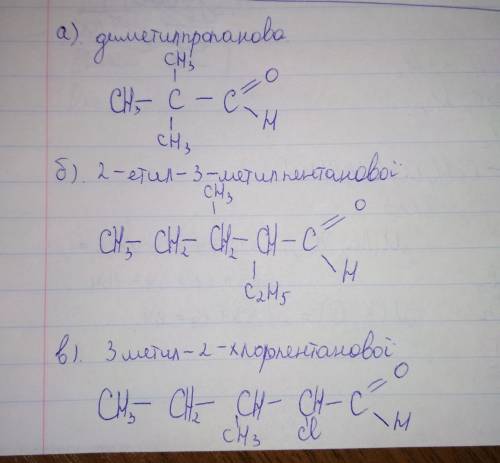 а) диметилпропанова
CH₃
CH₃ – C – C = O
H
CH₃
б). 2-етил-3-метилпентанової
CH₃
O
CH₃ – CH₂ – CH₂ – CH – C
H
C₂H₅
в). 3метил-2-хлорпентанової
O
CH₃ – CH₂ – CH – CH – C
CH₃ Cl H